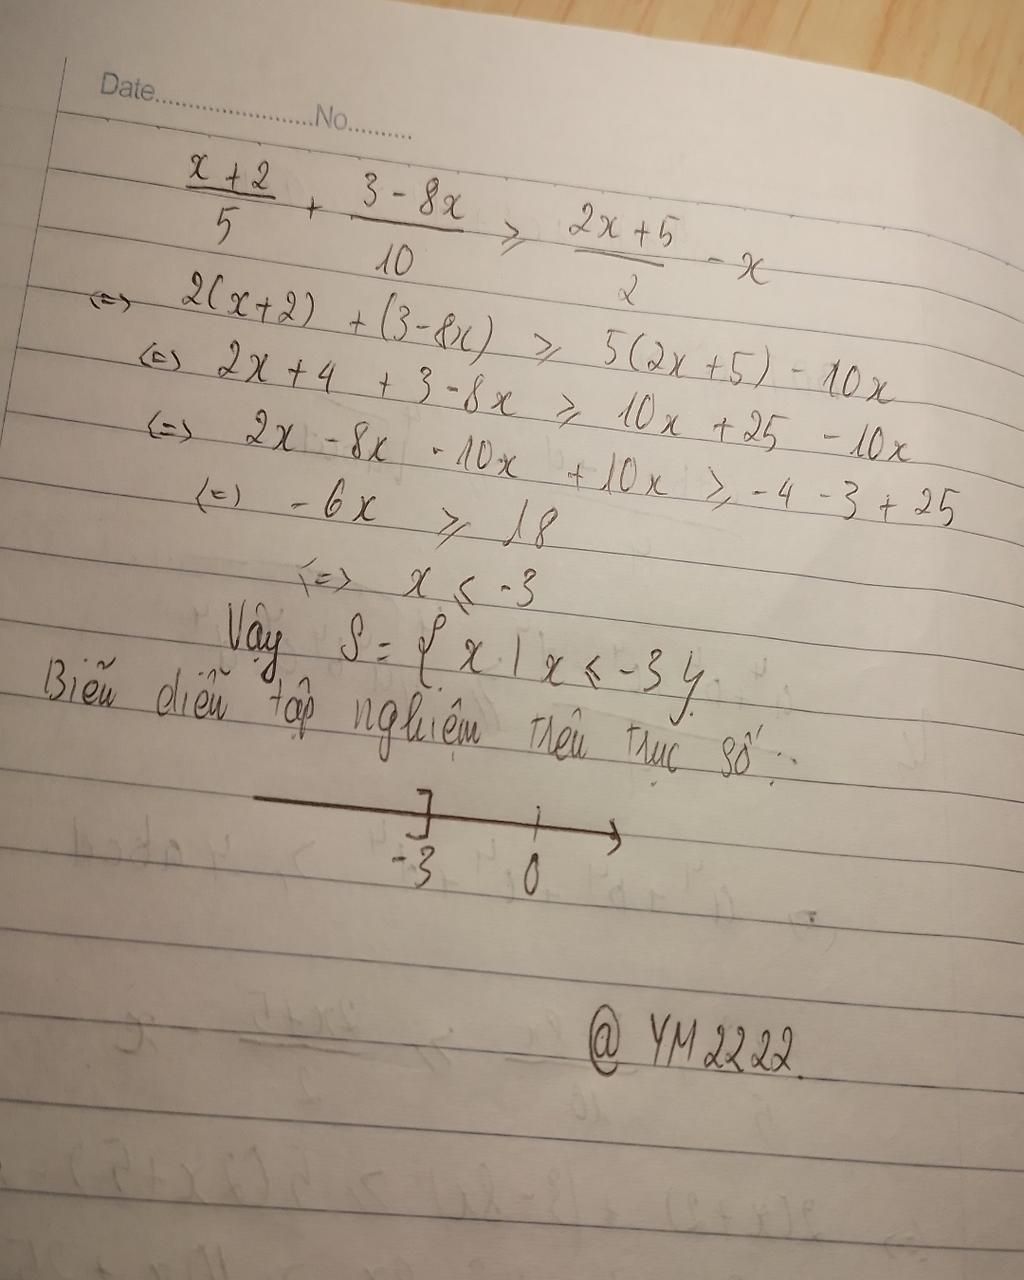 Date......................No..........
x + 2 / 5 + 3 - 8x / 10 ⩾ 2x + 5 / 2 - x
<=> 2(x+2) + (3-8x) ⩾ 5(2x+5) - 10x
<=> 2x + 4 + 3 - 8x ⩾ 10x + 25 - 10x
<=> 2x - 8x - 10x + 10x ⩾ -4 - 3 + 25
<=> - 6x ⩾ 18
<=> x ⩽ -3
Vậy S = { x | x ⩽ -3 }
Biễu diễn tập nghiệm trên trục số:
-3 0
@ YM2222.